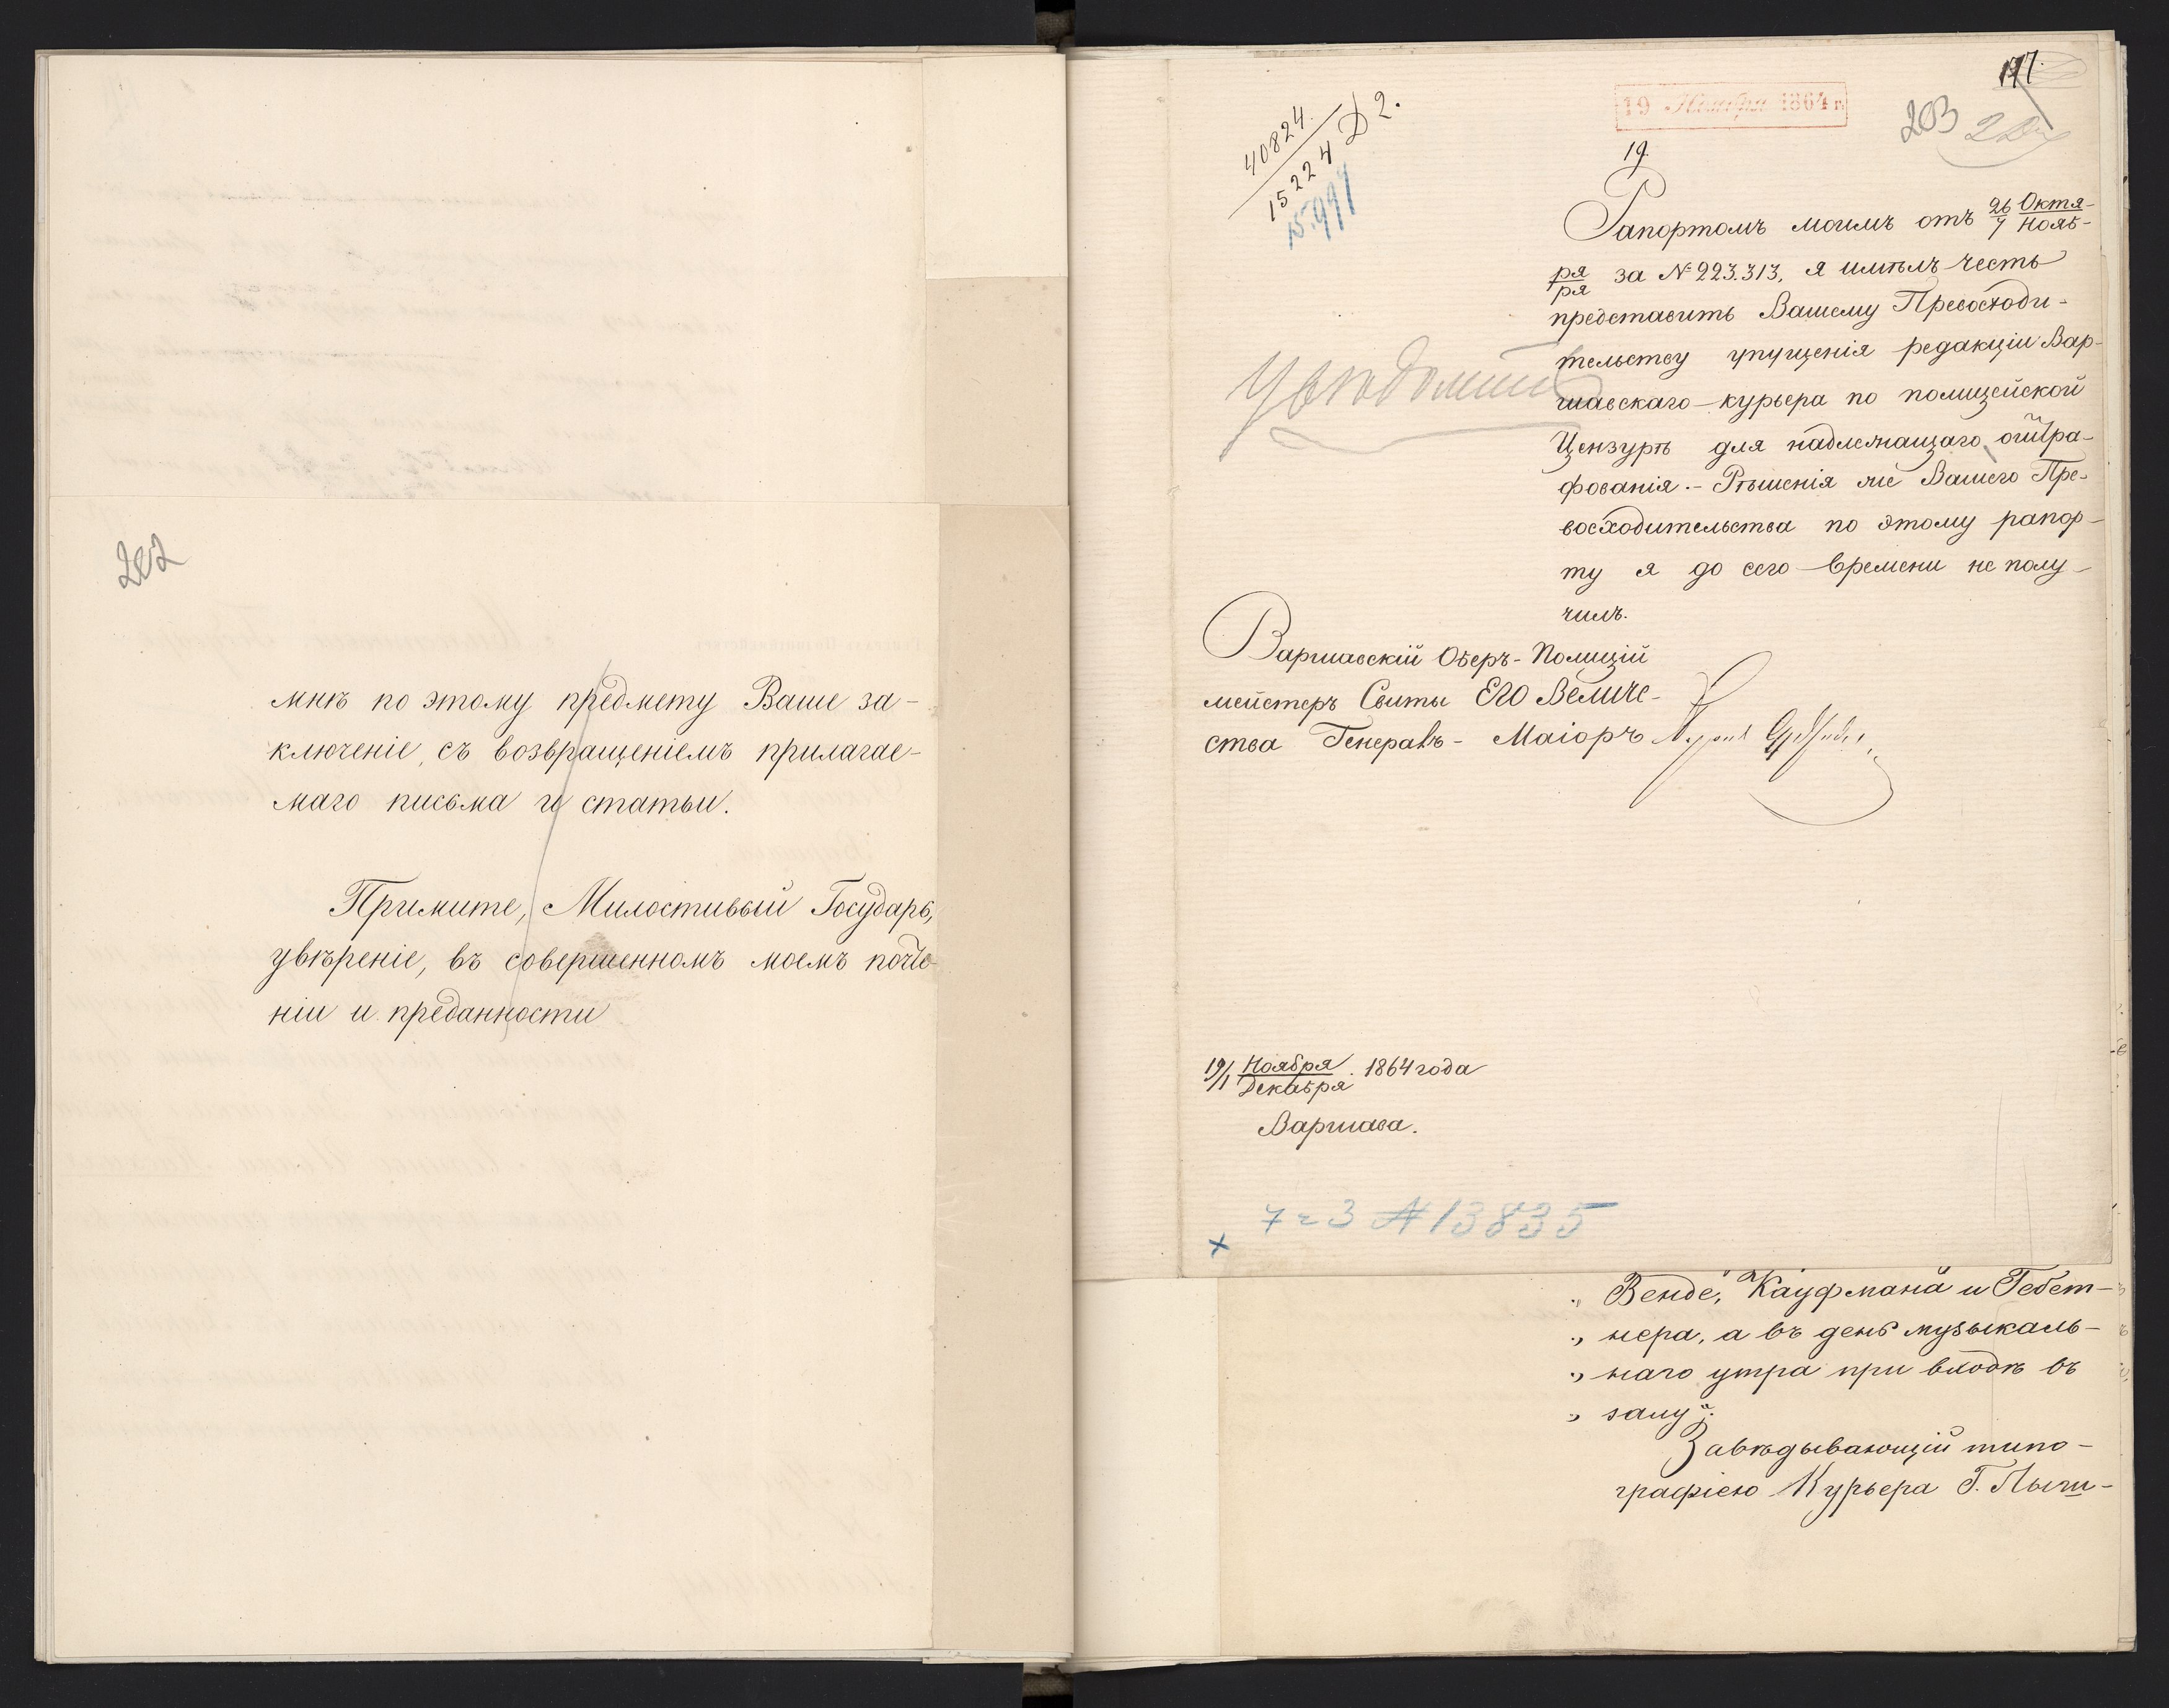 202
мнѣ по этому предмету Ваше за-
ключеніе, съ возвращеніемъ прилагае-
маго письма и статьи.
Примите, Милостивый Государь,
увѣреніе, въ совершенномъ моемъ почте-
ніи и преданности
197.
19 Ноября 1864 г.
203
40824.
15224 Д 2.
15.997
19.
Рапортомъ моимъ отъ 26/7 Октя-/Нояб-
ря/ря за № 223.313, я имѣлъ честь
представить Вашему Превосходи-
тельству упущенія редакціи Вар-
шавскаго курьера по полицейской
Цензурѣ для надлежащаго оштра-
фованія. - Рѣшенія же Вашего Пре-
восходительства по этому рапор-
ту я до сего времени не полу-
чилъ.
Увѣдомить
Варшавскій Оберъ-Полицій
мейстеръ Свиты ЕГО Величе-
ства Генералъ-Маіоръ
19/1 Ноября/Декабря 1864 года
Варшава.
7 г 3 № 13835
„ Венде, Кауфмана и Гебет-
„ нера, а въ день музыкаль-
„ наго утра при входѣ въ
„ залу".
Завѣдывающій типо-
графіею Курьера Г.